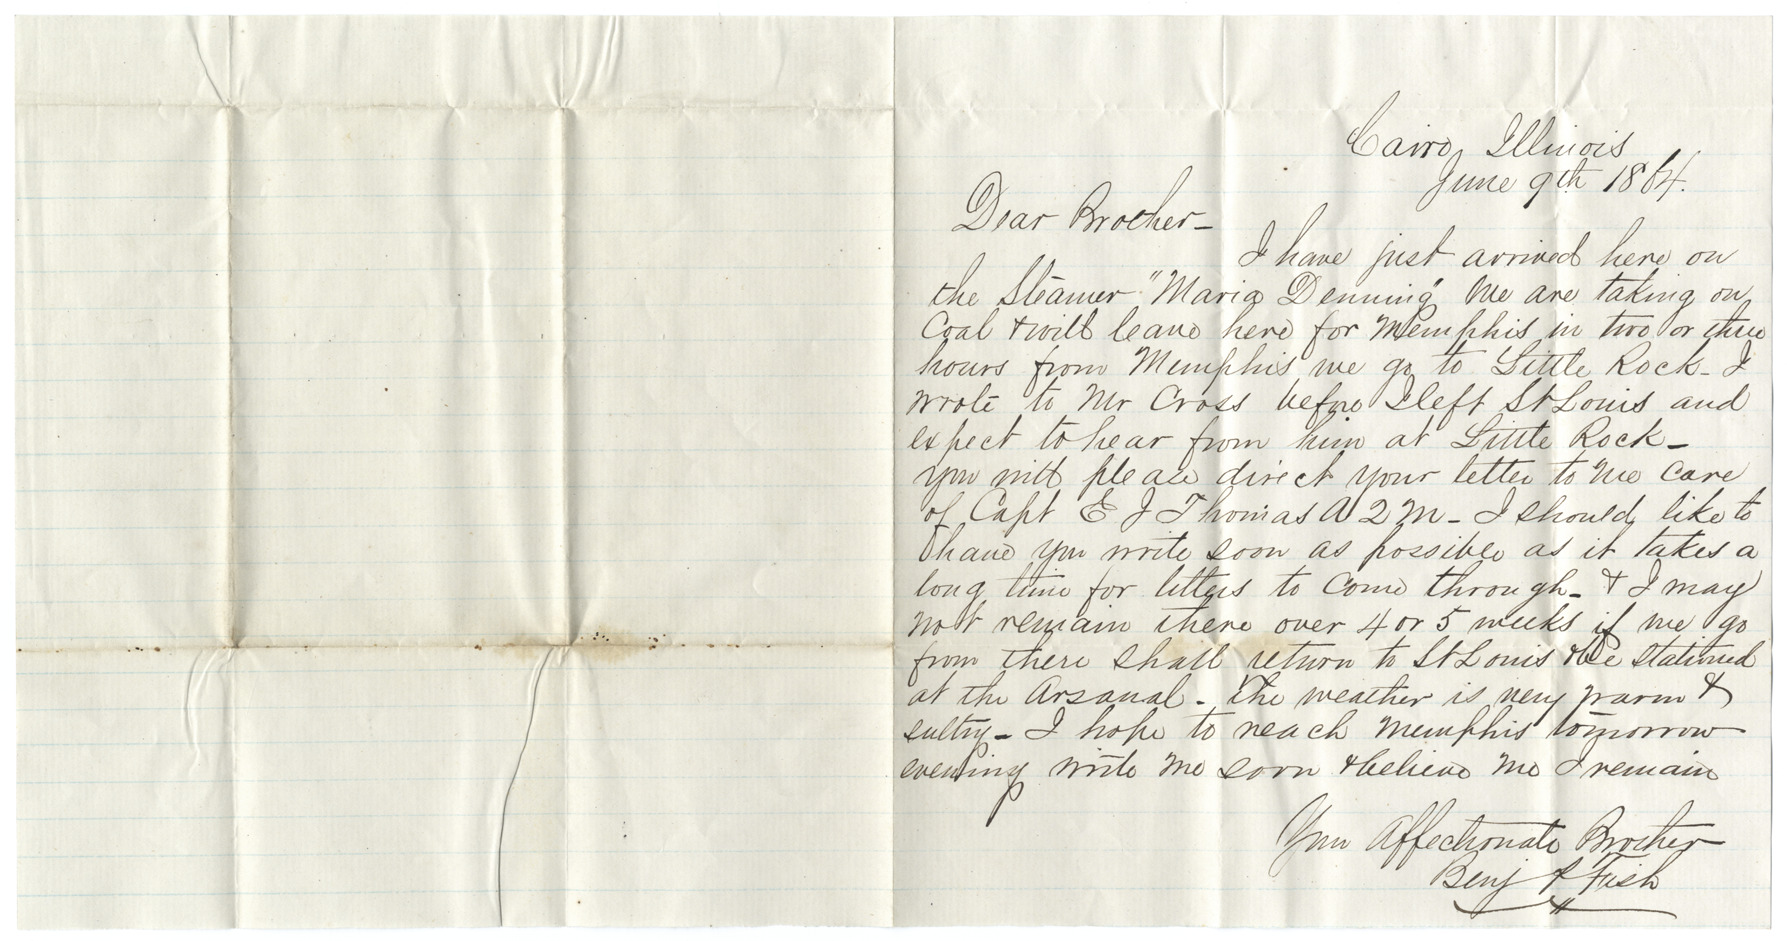 Cairo, Illinois
June 9th 1864.
Dear Brother -
I have just arrived here on
the Steamer "Maria Denning" We are taking on
Coal & will leave here for Memphis in two or three
hours from Memphis we go to Little Rock - I
wrote to Mr Cross before I left St Louis and
expect to hear from him at Little Rock -
you will please direct your letter to me care
of Capt E J Thomas A Q M - I should like to
have you write soon as possible as it takes a
long time for letters to come through - & I may
not remain there over 4 or 5 weeks if we go
from there shall return to St Louis & be stationed
at the Arsanal - The weather is very warm &
sultry - I hope to reach Memphis tomorrow
evening write me soon & believe me I remain
Your Affectionate Brother
Benj Fish